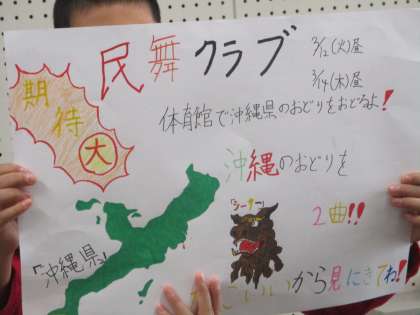 民舞クラブ
3/12(火)昼
3/14(木)昼
期待大
体育館で沖縄県のおどりをおどるよ!
沖縄のおどりを
2曲!!
「シーサー」
「沖縄県」
かっこいいから見にきてね!